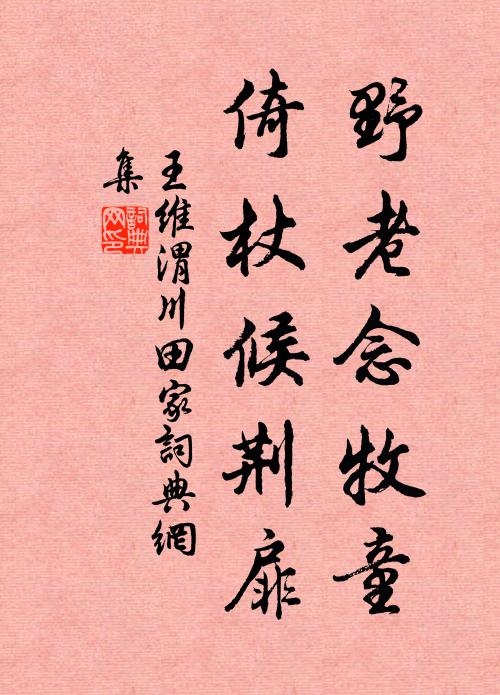 野老念牧童
倚杖候荆扉
王維渭川田家詞典網
集
詞典網印